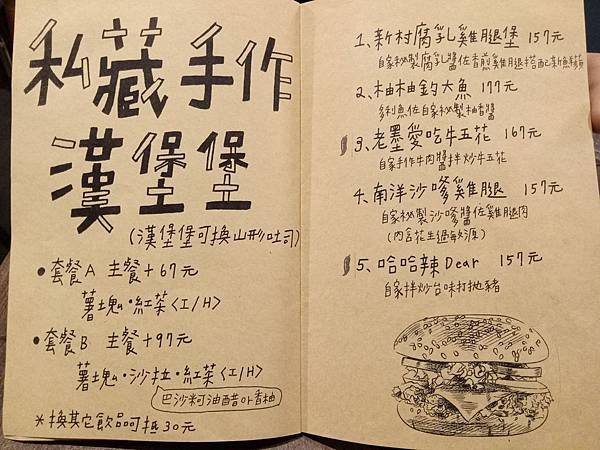 私藏手作
漢堡堡
(漢堡堡可換山形吐司)
●套餐A 主餐+67元
薯塊·紅茶<I/H>
●套餐B 主餐+97元
薯塊·沙拉·紅茶<I/H>
巴沙米可油醋or香柚
*換其它飲品可抵30元
1、新村腐乳雞腿堡 157元
自家秘製腐乳醬佐香煎雞腿搭配新鮮蘋
2、柚柚鈞大魚 177元
多利魚佐自家秘製柚香醬
3、老墨愛吃牛五花 167元
自家手作牛肉醬拌炒牛五花
4、南洋沙嗲雞腿 157元
自家秘製沙嗲醬佐雞腿肉
(內含花生過敏源)
5、哈哈辣Dear 157元
自家拌炒台味打拋豬